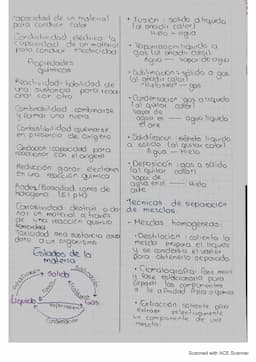 capacidad de un material
para conducir calor
Conductividad eléctrica: la
capacidad de un material
para conducir electricidad
Propiedades
químicas
Reactividad: habilidad de
una sustancia para reaccionar
con otra
combinarse
y formar una nueva
quemarse
en presencia de oxígeno
capacidad para
reaccionar con el oxígeno
Reducción: ganar electrones
en una reacción química
iones de
hidrógeno (pH)
Corrosividad: destruir o dañar
un material a través
de una reacción química
Toxicidad: una sustancia causa
daño a un organismo
Estados de la
materia
Sólido
Líquido
Gas
Condensación
• Fusión: sólido a líquido
(al añadir calor)
Hielo → agua
• Vaporización: líquido a
gas (al añadir calor)
Agua → vapor de agua
• Sublimación: sólido a gas
(al añadir calor)
→ gas
• Condensación: gas a líquido
(al quitar calor)
vapor de
agua en → agua líquida
el aire
• Solidificación: líquido
a sólido (al quitar calor)
Agua → hielo
• Deposición: gas a sólido
(al quitar calor)
vapor de
agua en el → hielo
aire
Técnicas de separación
de mezclas.
• Mezclas homogéneas:
- Destilación: calienta la
mezcla evapora el líquido
y se condensa el vapor
para obtenerlo separado.
- Cromatografía: fase móvil y
fase estacionaria para
separar los componentes
afinidad física o química
- Extracción: solvente para
extraer selectivamente
un componente de una
mezcla.
Scanned with ACE Scanner